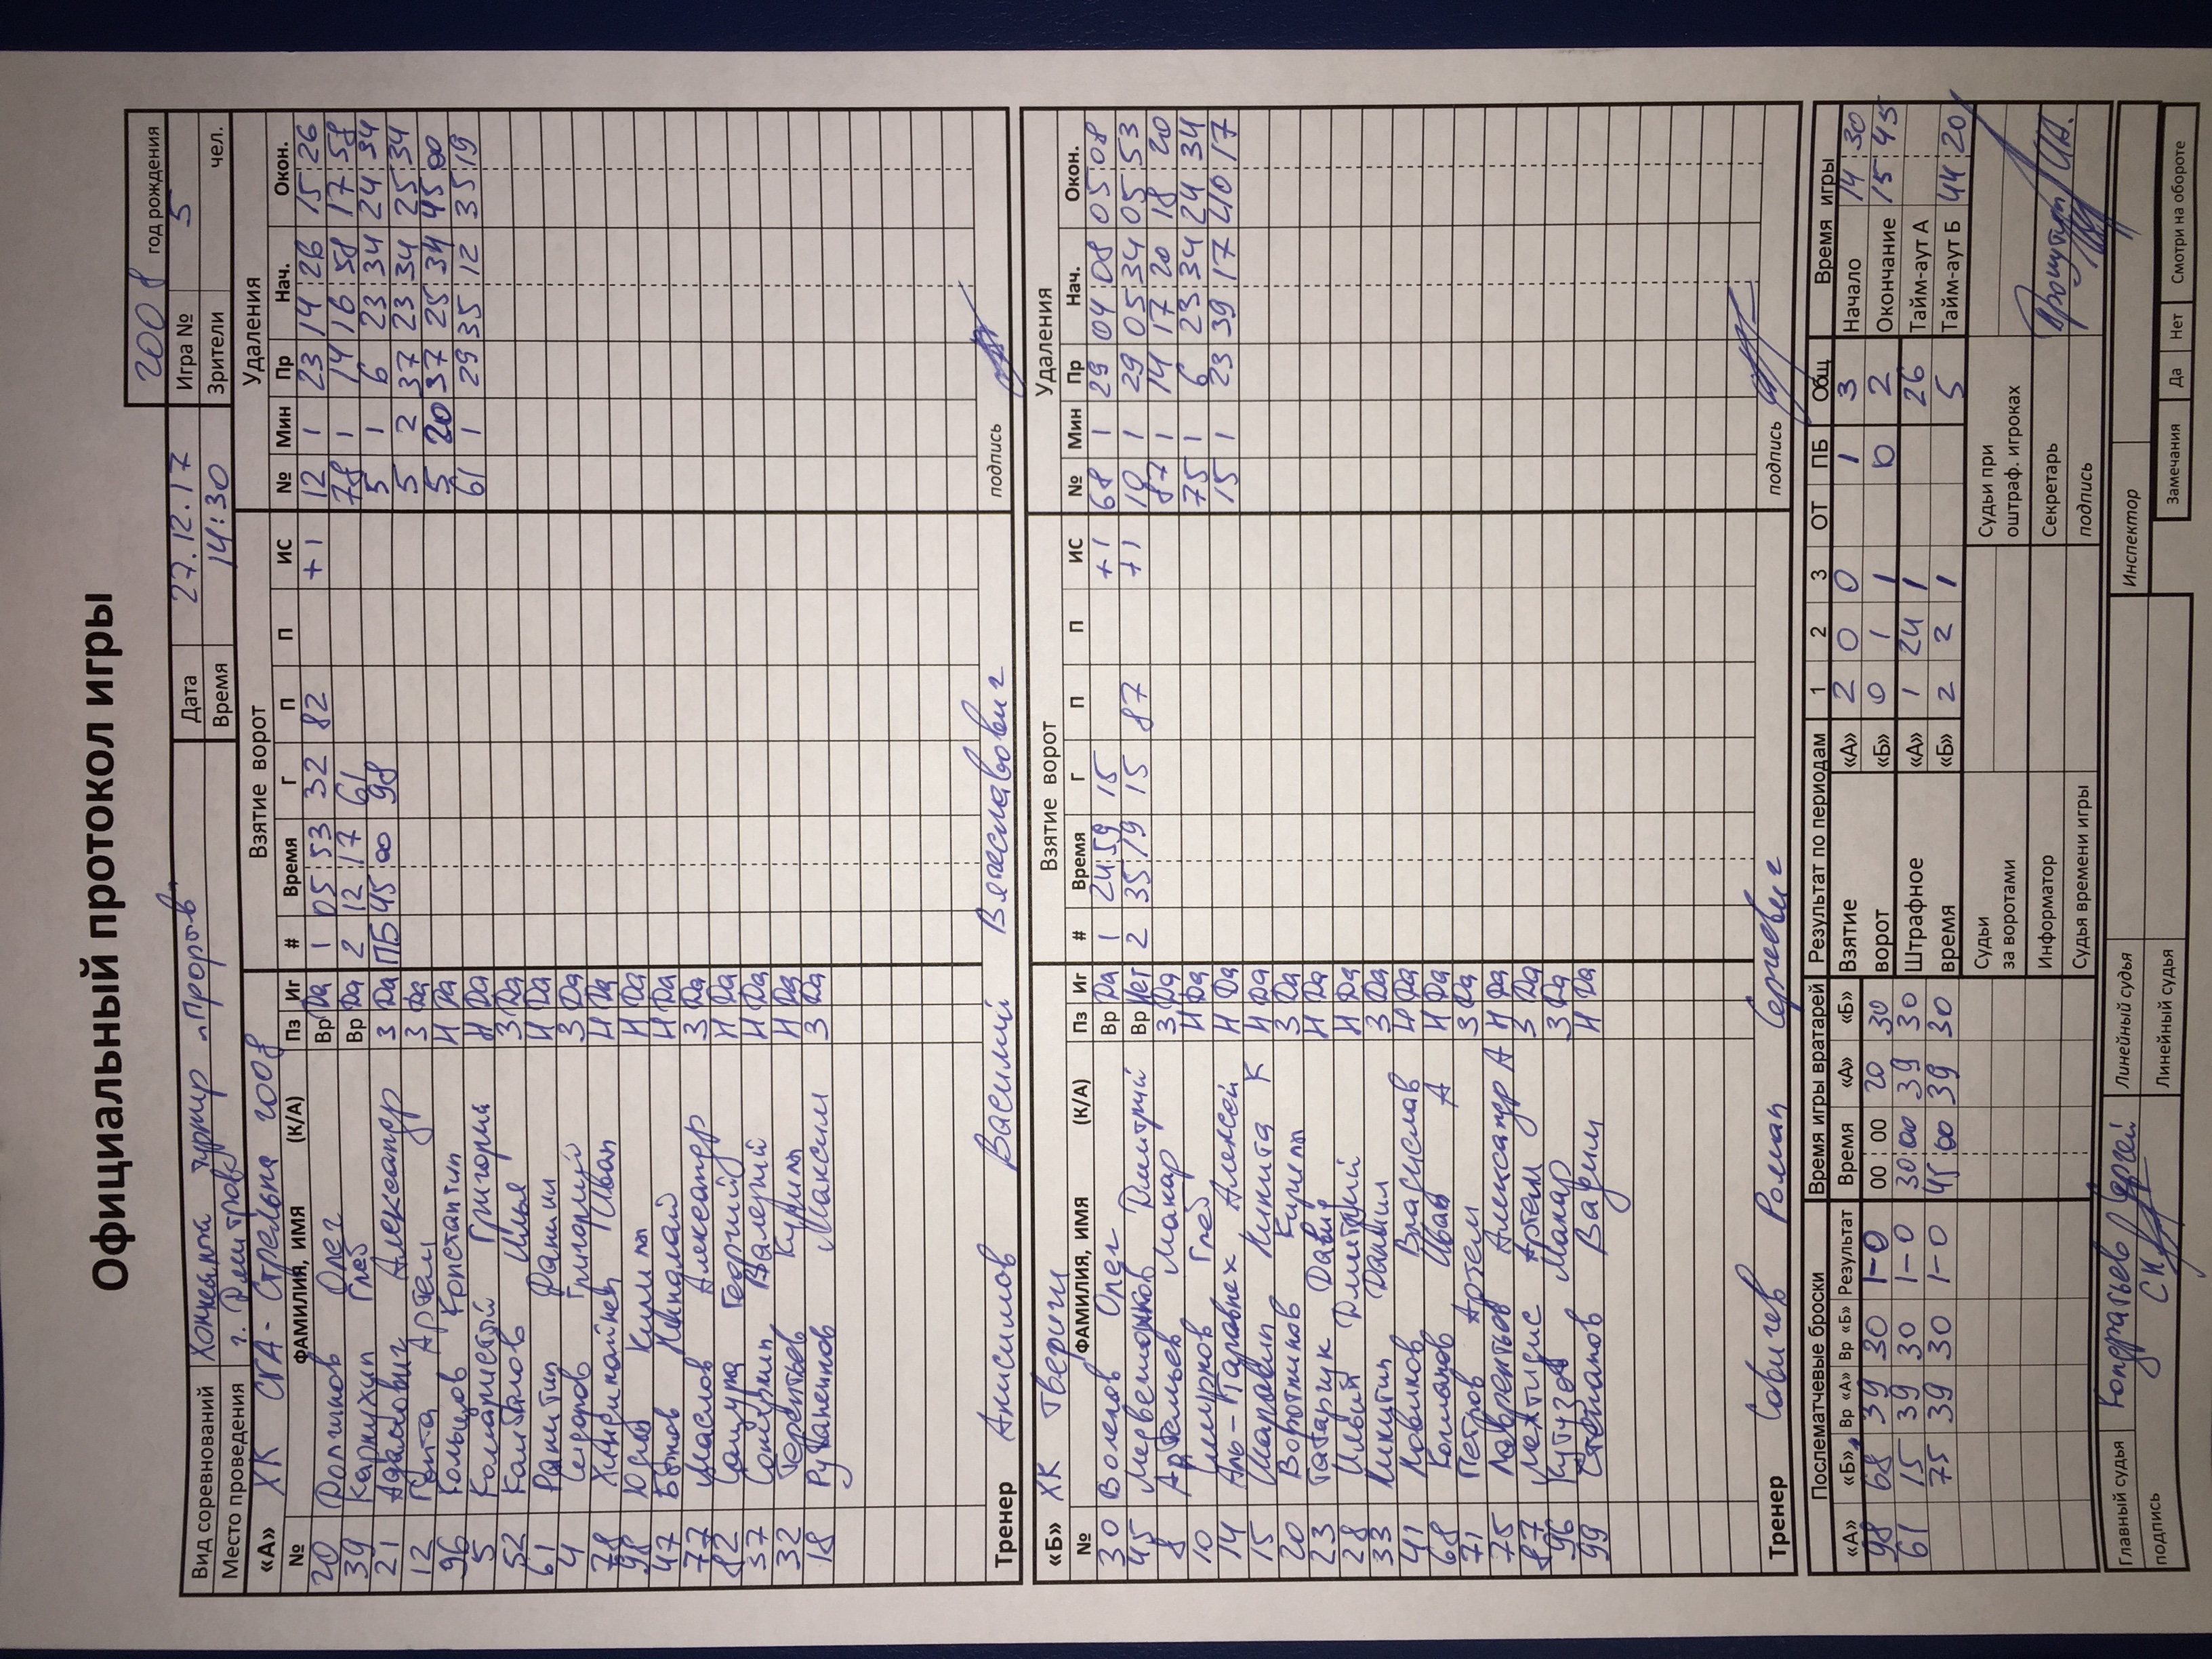 Официальный протокол игры
2008 год рождения
Вид соревнований Хоккейный турнир "Прорыв" Дата 27.12.17 Игра № 5
Место проведения г. Дмитров Время 14:30 Зрители чел.
«А» ХК СКА-Стрельна 2008 Взятие ворот Удаления
№ ФАМИЛИЯ, ИМЯ (К/А) Пз Иг # Время Г П П ИС № Мин Пр Нач. Окон.
20 Олег Вр Да 1 05 53 32 82 +1 12 1 23 14 26 15 26
39 Глеб Вр Да 2 12 17 61 78 1 14 16 58 17 58
21 Александр З Да ПБ 45 00 98 5 1 6 23 34 24 34
12 Артём З Да 5 2 37 23 34 25 34
96 Кольцов Константин Н Да 5 20 37 25 34 45 00
5 Григорий Н Да 61 1 29 35 12 35 19
52 Илья З Да
61 Н Да
4 Сидоров Григорий З Да
78 Иван Н Да
98 Кирилл Н Да
47 Н Да
77 Маслов Александр З Да
82 Георгий Н Да
37 Валерий Н Да
32 Терентьев Кирилл Н Да
18 Максим З Да
Тренер Анисимов Василий Вячеславович подпись
«Б» ХК Твери Взятие ворот Удаления
№ ФАМИЛИЯ, ИМЯ (К/А) Пз Иг # Время Г П П ИС № Мин Пр Нач. Окон.
30 Олег Вр Да 1 24 59 15 +1 68 1 29 04 08 05 08
45 Дмитрий Вр Нет 2 35 19 15 87 +1 10 1 29 05 34 05 53
8 Артемьев Макар З Да 87 1 14 17 20 18 20
10 Глеб Н Да 75 1 6 23 34 24 34
14 Аль- Алексей Н Да 15 1 23 39 17 40 17
15 Никита К Н Да
20 Воротников Кирилл З Да
23 Татарчук Давид Н Да
28 Ильин Дмитрий Н Да
33 Никитин Даниил З Да
41 Новиков Владислав Н Да
68 Иван А Н Да
71 Петров Артем З Да
75 Лаврентьев Александр А Н Да
87 Артем З Да
96 Кутузов Макар З Да
99 Степанов Вадим Н Да
Тренер Савичев Роман Сергеевич подпись
Послематчевые броски Время игры вратарей Результат по периодам 1 2 3 ОТ ПБ Общ Время игры
«А» «Б» Вр «А» Вр «Б» Результат Время «А» «Б» Взятие ворот «А» 2 0 0 1 3 Начало 14 30
98 68 39 30 1-0 00 00 20 30 «Б» 0 1 1 0 2 Окончание 15 45
61 15 39 30 1-0 30 00 39 30 Штрафное время «А» 1 24 1 26 Тайм-аут А
75 39 30 1-0 45 00 39 30 «Б» 2 2 1 5 Тайм-аут Б 44 20
Судьи за воротами Судьи при оштраф. игроках
Информатор Секретарь
Судья времени игры подпись
Главный судья Кондратьев Сергей Линейный судья Инспектор
подпись Линейный судья Замечания Да Нет Смотри на обороте